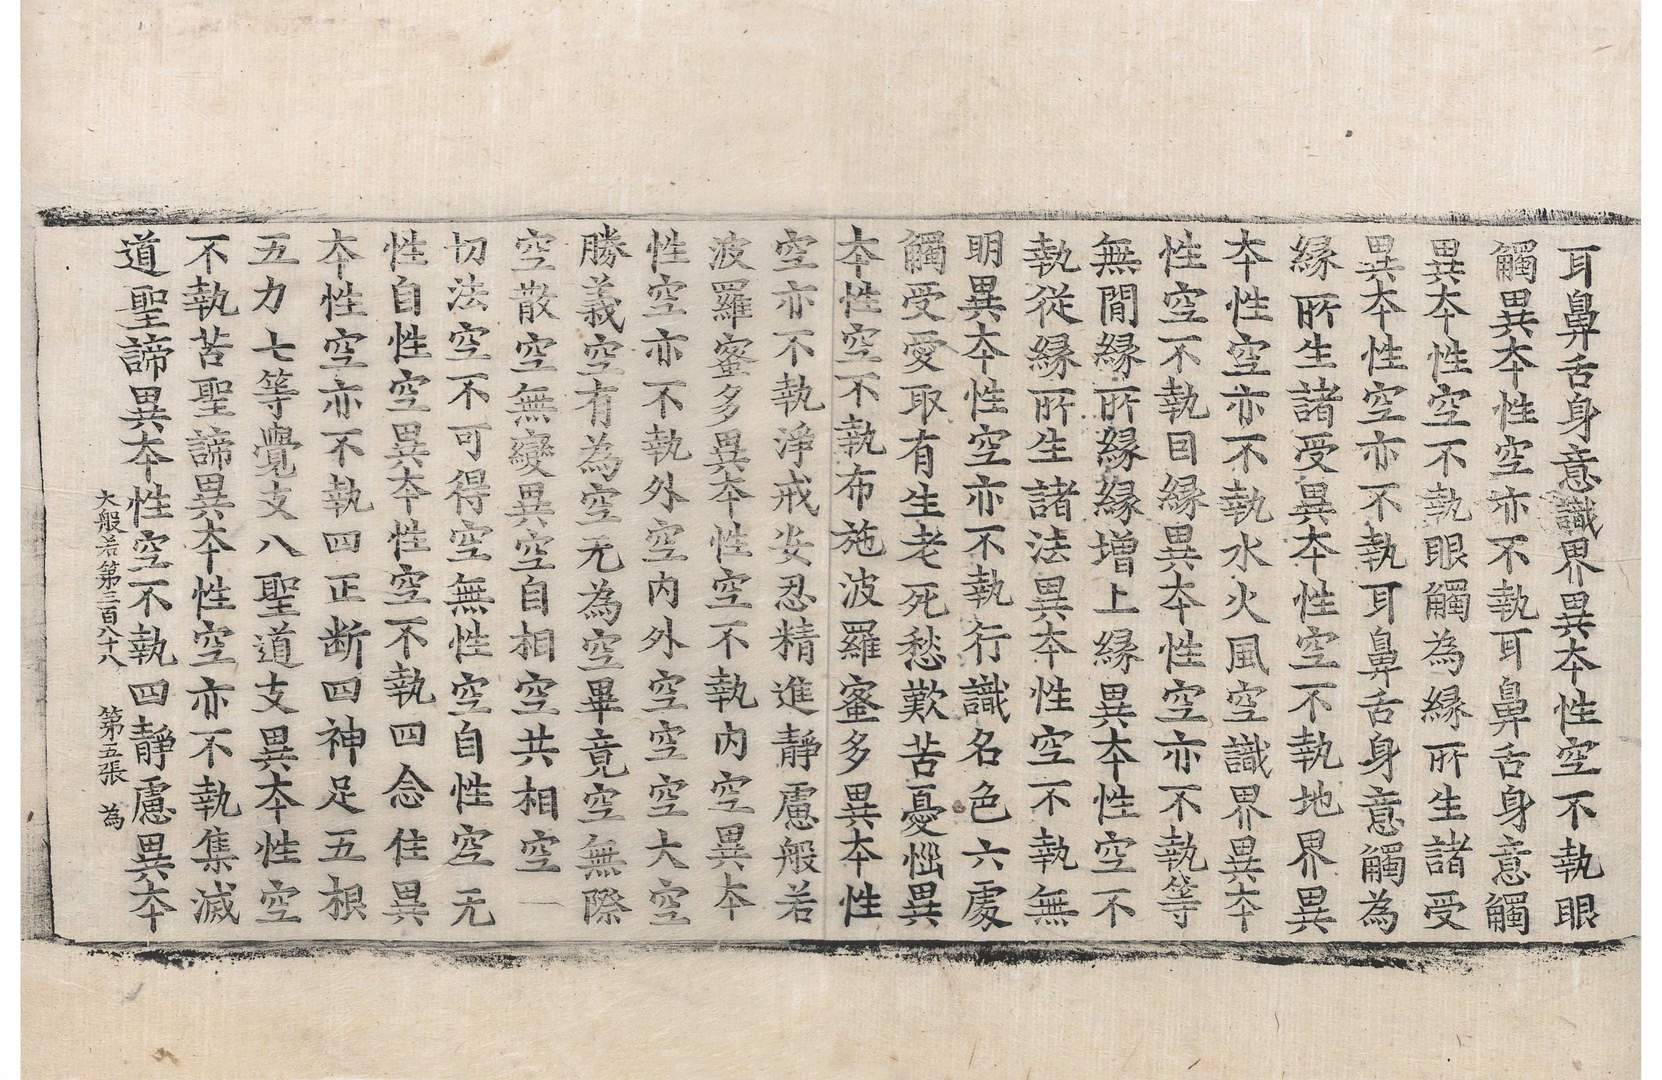 耳鼻舌身意識界異夲性空不執眼
觸異夲性空亦不執耳鼻舌身意觸
異夲性空不執眼觸為縁所生諸受
異夲性空亦不執耳鼻舌身意觸為
縁所生諸受異夲性空不執地界異
夲性空亦不執水火風空識界異夲
性空不執因縁異夲性空亦不執等
無間縁所縁縁增上縁異夲性空不
執從縁所生諸法異夲性空不執無
明異夲性空亦不執行識名色六處
觸受愛取有生老死愁歎苦憂惱異
夲性空不執布施波羅蜜多異夲性
空亦不執淨戒安忍精進靜慮般若
波羅蜜多異夲性空不執内空異夲
性空亦不執外空内外空空空大空
勝義空有為空无為空畢竟空無際
空散空無變異空自相空共相空一
切法空不可得空無性空自性空无
性自性空異夲性空不執四念住異
夲性空亦不執四正断四神足五根
五力七等覺支八聖道支異夲性空
不執苦聖諦異夲性空亦不執集滅
道聖諦異夲性空不執四靜慮異夲
大般若第三百八十八 第五張 為